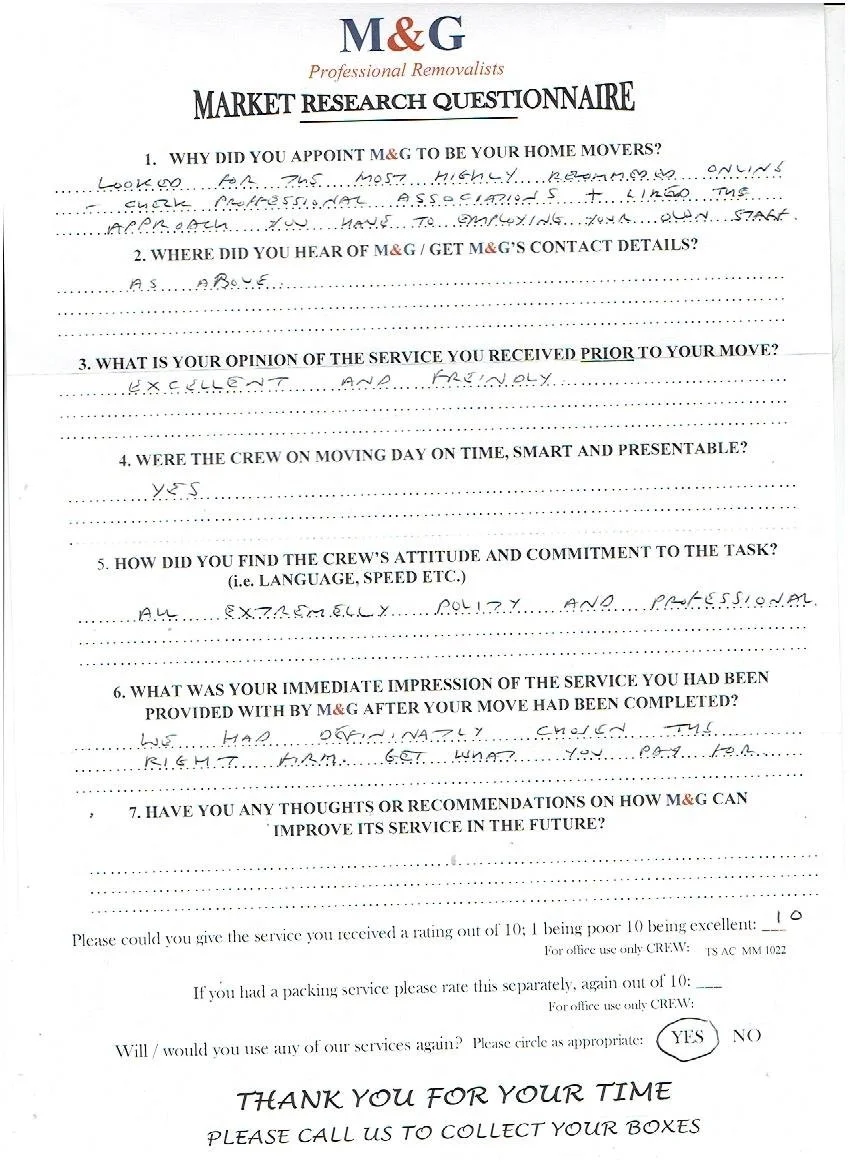 M&G
Professional Removalists
MARKET RESEARCH QUESTIONNAIRE
1. WHY DID YOU APPOINT M&G TO BE YOUR HOME MOVERS?
LOOKED FOR THE MOST HIGHLY RECOMMEDED ONLINE
- CHECK PROFESSIONAL ASSOCIATIONS + LIKED THE
APPROACH YOU HAVE TO EMPLOYING YOUR OWN STAFF.
2. WHERE DID YOU HEAR OF M&G / GET M&G'S CONTACT DETAILS?
AS ABOVE
3. WHAT IS YOUR OPINION OF THE SERVICE YOU RECEIVED PRIOR TO YOUR MOVE?
EXCELLENT AND FREINDLY
4. WERE THE CREW ON MOVING DAY ON TIME, SMART AND PRESENTABLE?
YES
5. HOW DID YOU FIND THE CREW'S ATTITUDE AND COMMITMENT TO THE TASK?
(i.e. LANGUAGE, SPEED ETC.)
ALL EXTREMELLY AND PROFESSIONAL
6. WHAT WAS YOUR IMMEDIATE IMPRESSION OF THE SERVICE YOU HAD BEEN
PROVIDED WITH BY M&G AFTER YOUR MOVE HAD BEEN COMPLETED?
WE HAD DEFININATLY CHOSEN THE
RIGHT FIRM. GET WHAT YOU PAY FOR
7. HAVE YOU ANY THOUGHTS OR RECOMMENDATIONS ON HOW M&G CAN
IMPROVE ITS SERVICE IN THE FUTURE?
Please could you give the service you received a rating out of 10; 1 being poor 10 being excellent: 10
For office use only CREW: TS AC MM 1022
If you had a packing service please rate this separately, again out of 10: ___
For office use only CREW:
Will / would you use any of our services again? Please circle as appropriate: YES NO
THANK YOU FOR YOUR TIME
PLEASE CALL US TO COLLECT YOUR BOXES